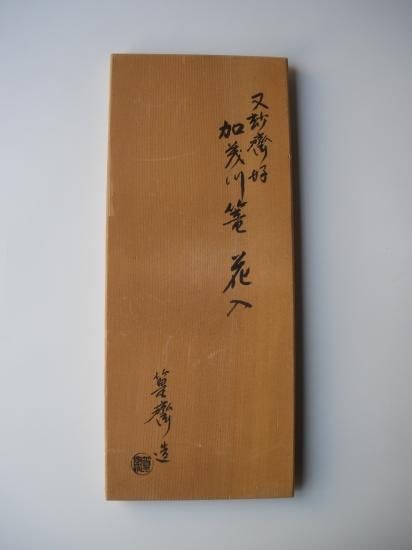 又玅斎好
加茂川篭 花入
篁斎造